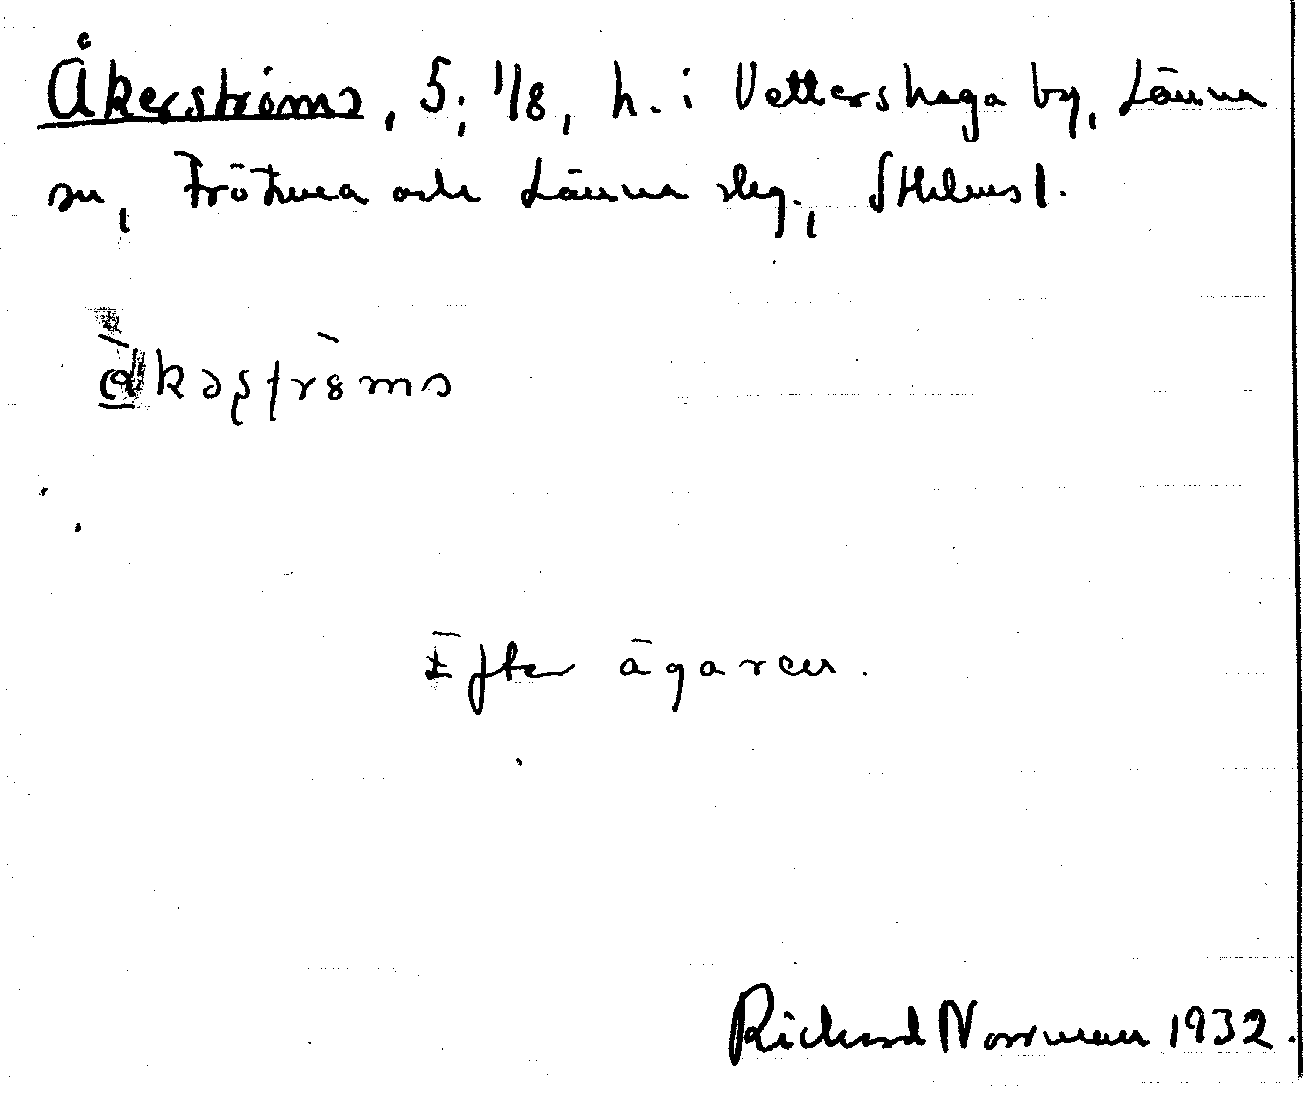 Åkerströms, 5; 1/8, h. i Vettershaga by, Länna
sn, Frötuna och Länna skg., Sthlms l.
åkəʂtröms
Efter ägaren.
Rickard Norrman 1932.